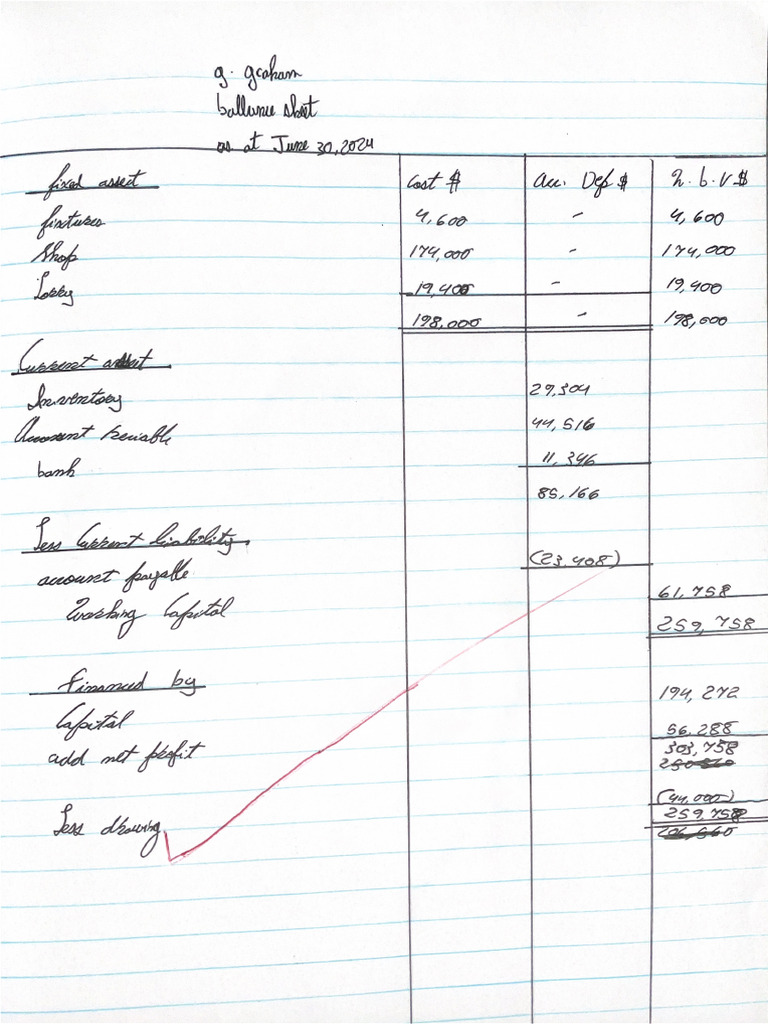 g. graham
ballance sheet
as at June 30, 2024
fixed asset Cost $ Acc. Dep $ n. b. v $
fixtures 4,600 - 4,600
Shop 174,000 - 174,000
Lorry 19,400 - 19,400
198,000 - 198,000
Current asset
Inventory 29,304
Account 44,516
bank 11,346
85,166
Less Current liability
(23,408)
account payable
61,758
Working Capital
259,758
Financed by
194,272
Capital
56,288
add net profit 303,758
(44,000)
Less drawing 259,758